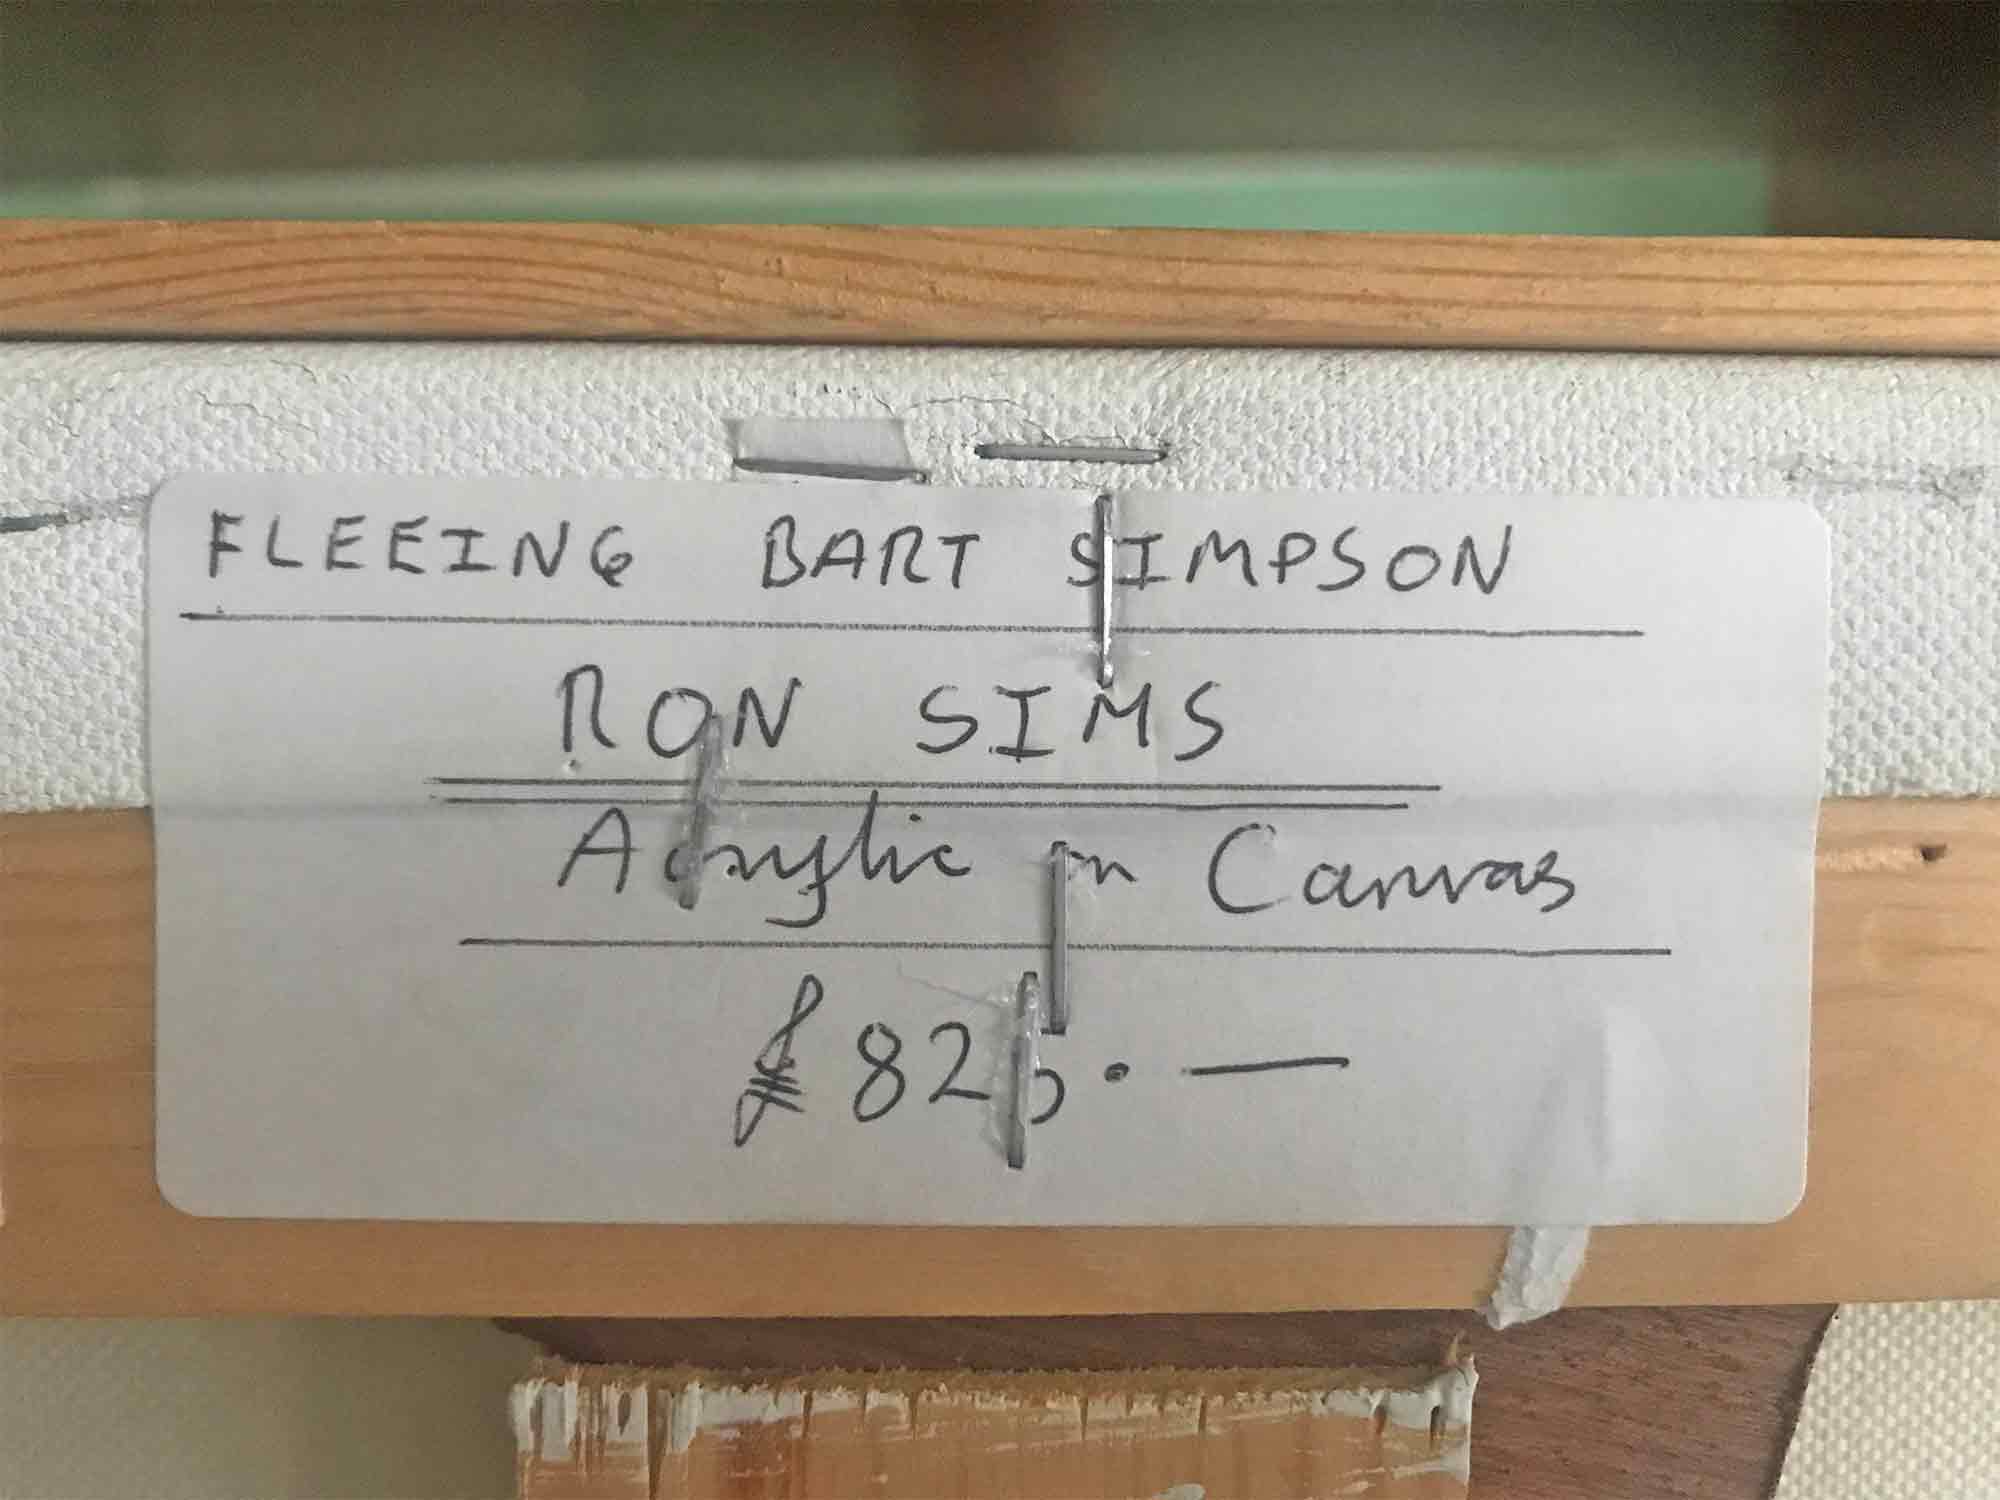 FLEEING BART SIMPSON
RON SIMS
Acrylic on Canvas
£825.—